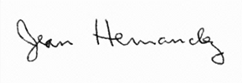 Jean Hernandez